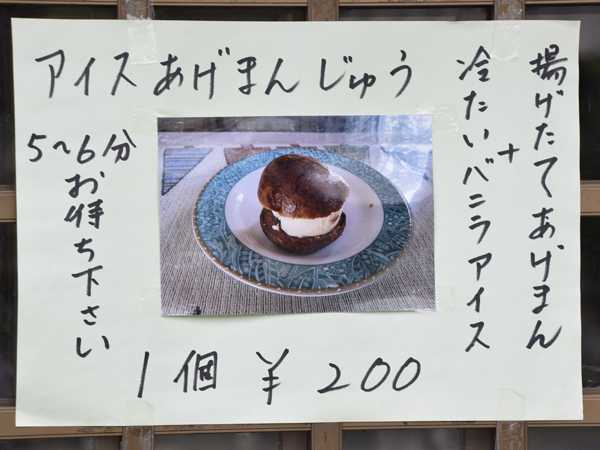 アイスあげまんじゅう
揚げたてあげまん
+
冷たいバニラアイス
5〜6分
お待ち下さい
1個 ¥200